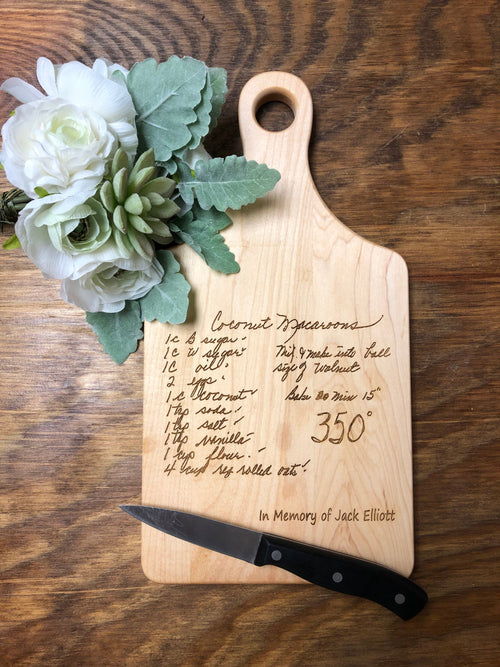 Coconut Macaroons
1 C B sugar
1 C W sugar
1 C oil
2 eggs
1 C coconut
1 tsp soda
1 tsp salt
1 tsp vanilla
1 cup flour
4 cup reg rolled oats
Mix & make into ball
size of walnut
Bake 20 min 15"
350°
In Memory of Jack Elliott